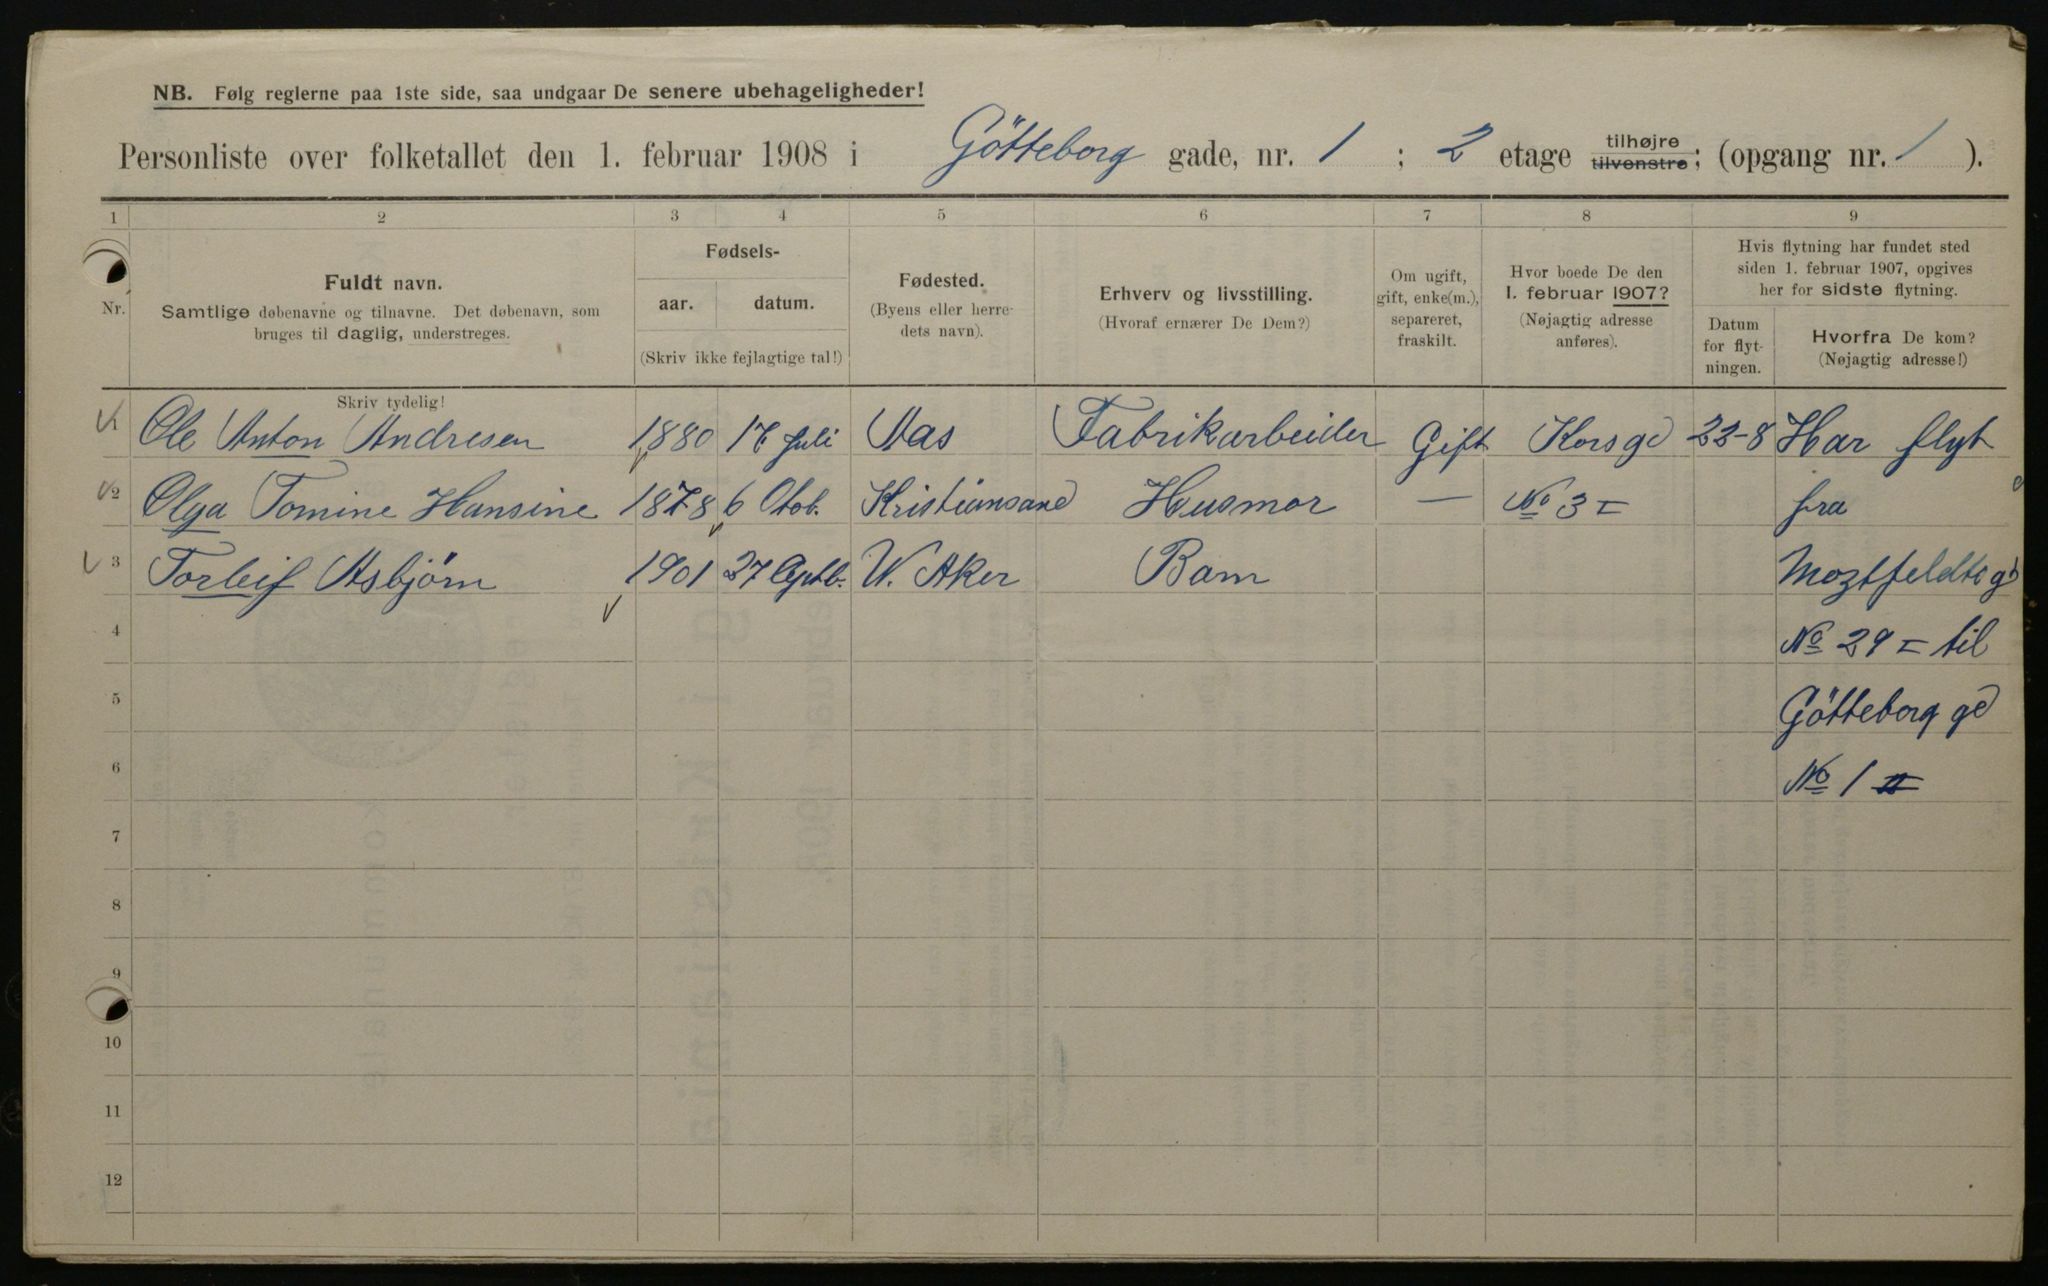 NB. Følg reglerne paa 1ste side, saa undgaar De senere ubehageligheder!
Personliste over folketallet den 1. februar 1908 i Götteborg gade, nr. 1 ; 2 etage tilhøjre tilvenstre; (opgang nr. 1 ).
1 2 3 4 5 6 7 8 9
Nr.
Fuldt navn.
Samtlige døbenavne og tilnavne. Det døbenavn, som
bruges til daglig, understreges.
Skriv tydelig!
Fødsels-
aar. datum.
(Skriv ikke fejlagtige tal!)
Fødested.
(Byens eller herre-
dets navn).
Erhverv og livsstilling.
(Hvoraf ernærer De Dem?)
Om ugift,
gift, enke(m.),
separeret,
fraskilt.
Hvor boede De den
1. februar 1907?
(Nøjagtig adresse
anføres).
Hvis flytning har fundet sted
siden 1. februar 1907, opgives
her for sidste flytning.
Datum
for flyt-
ningen.
Hvorfra De kom?
(Nøjagtig adresse!)
1 Ole Anton Andresen 1880 Juli Aas Fabrikarbeider Gift Korsgd 22-8 Har flyt
2 Olga Tomine Hansine 1878 6 Otob. Kristiansand Husmor — No 3 = fra
3 Torleif Asbjørn 1901 27 V. Aker Barn
No 29 = til
4
5 Götteborg gd
6 No 1
7
8
9
10
11
12